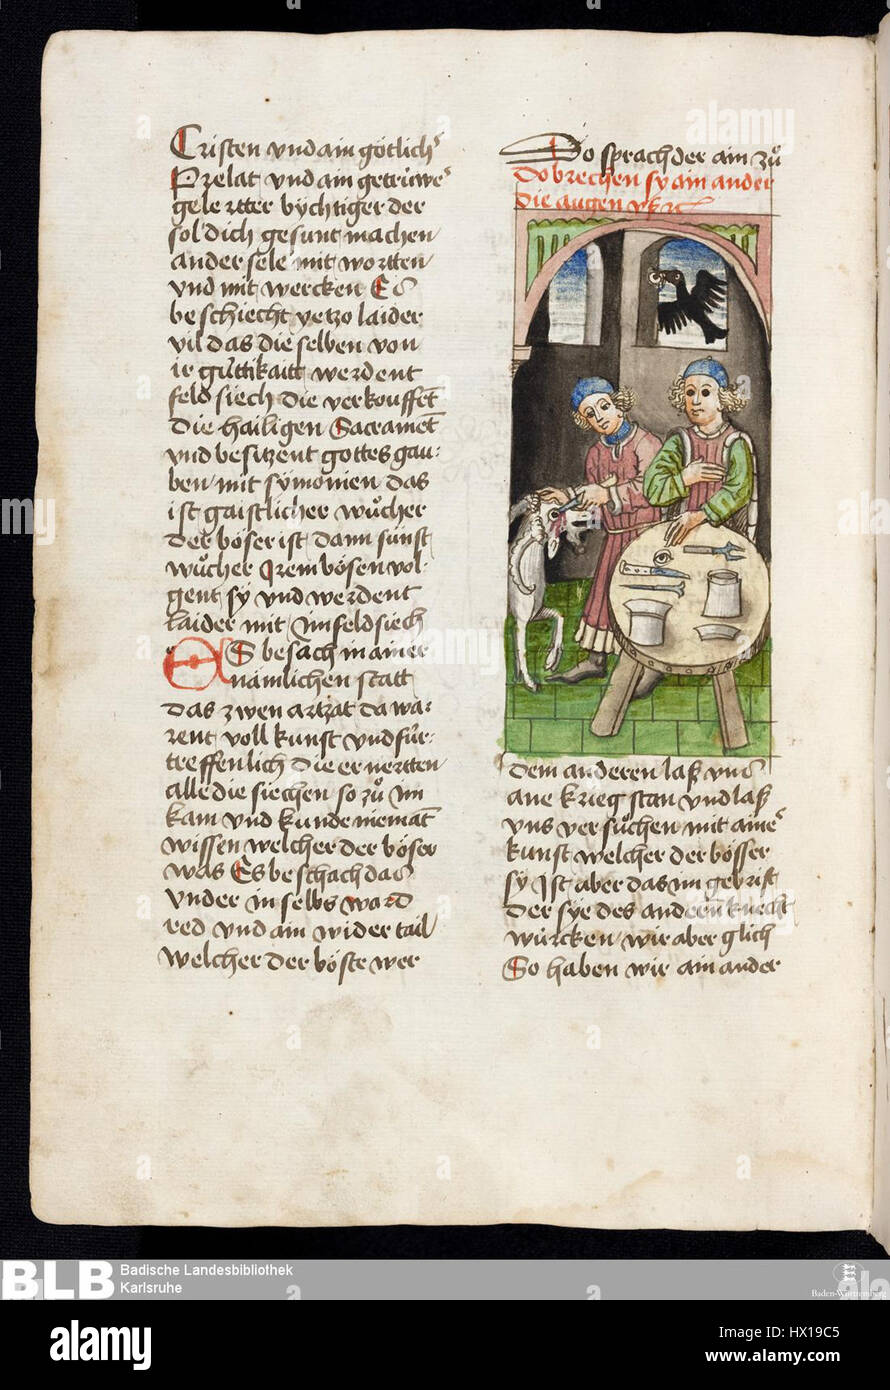 Cristen vnd ain götlich
Prelat vnd ain getrüwe
gelertter bychtiger der
sol dich gesunt machen
an der sele mit wortten
vnd mit wercken Es
beschiecht yetzo laider
vil das die selben von
ir güttikaitt werdent
feld siech die verkouffet
die hailigen Sacramet
vnd besitzent gottes gau-
ben mit symonien das
ist gaistlicher wůcher
der böser ist dann sunst
wůcher Irem bösen vol-
gent sy vnd werdent
laider mit im feldsiech
ES besach in ainer
nämlichen statt
das zwen artzat da wa-
rent voll kunst vnd für-
treffenlich die ernertten
alle die siechen so zů im
kam vnd kunde niemāt
wissen welcher der böser
was Es beschach das
vnder in selbs ward
red vnd ain widertail
welcher der böste wer
Do sprach der ain zů
do brechen sy ain ander
die augen vß
dem anderen laß vns
ane krieg stan vnd laß
vns versůchen mit aine
kunst welcher der bösser
sy Ist aber das im gebrist
der sye des anderñ knecht
würcken wir aber glich
So haben wir ain ander
BLB
Badische Landesbibliothek
Karlsruhe
Baden-Württemberg
alamy
Image ID: HX19C5
www.alamy.com